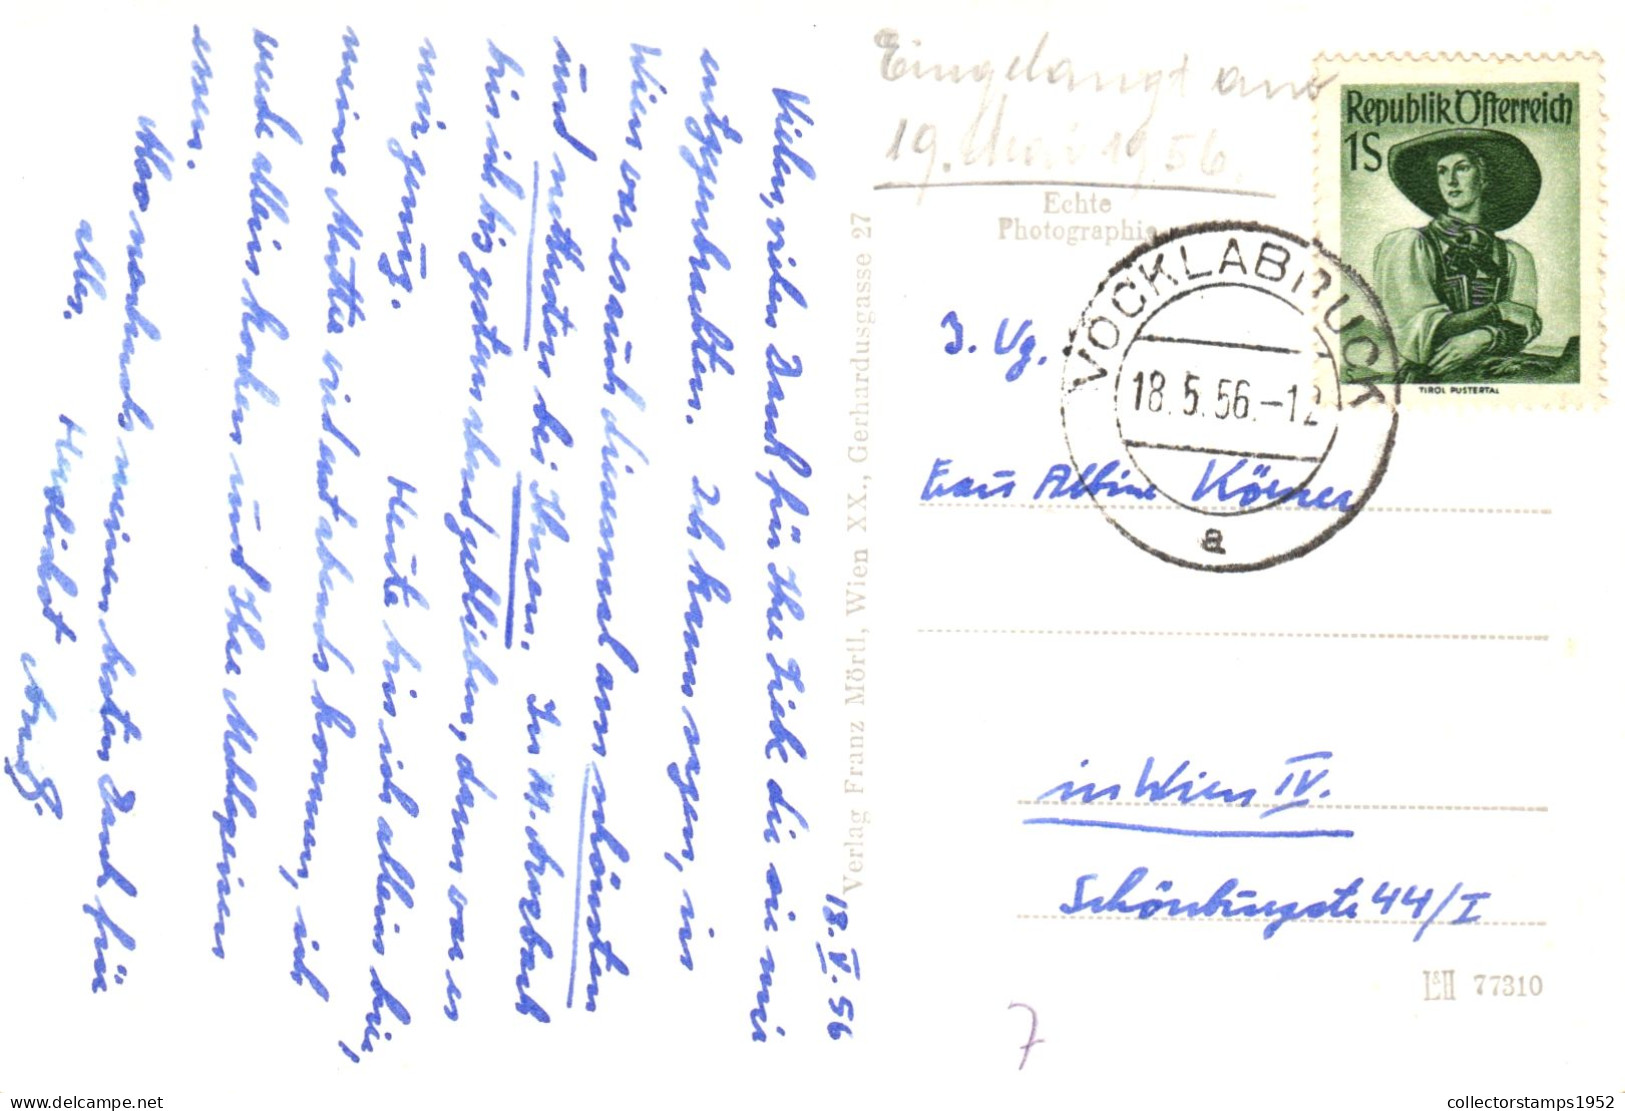 18. V. 56
Vielen, vielen Dank für Ihre Liebe die sie mir
entgegenbrachten. Ich kann sagen, in
Wien war es auch diesmal am schönsten
und nettesten bei Ihnen. In
bis ich bis gestern abend geblieben, dann war es
mir genug.
Heute bin ich allein hier,
meine Mutter wird erst abends kommen, ich
werde allein kochen und Ihre Mehlspeisen
essen.
Also nochmals meinen besten Dank für
alles.
Herzlichst
Eingelangt am
19. Mai 1956.
Echte
Photographie
Republik Österreich
1S
TIROL PUSTERTAL
VÖCKLABRUCK
18.5.56.-12
a
Frau Albine Körner
in Wien IV.
Schönburgstr 44/I
Verlag Franz Mörtl, Wien XX., Gerhardusgasse 27
77310
7
collectorstamps1952
delcampe.net